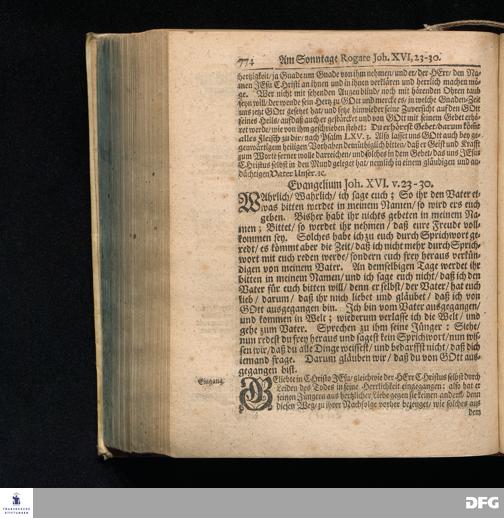 774 Am Sonntage Rogate Joh. XVI, 23-30.
hertzigkeit/ ja Gnade um Gnade von ihm nehmen/ und er/ der HErr/ den Na-
men JEsu Christi an ihnen und in ihnen verklären und herrlich machen mö-
ge. Wer nicht mit sehenden Augen blind/ noch mit hörenden Ohren taub
seyn will/ der wende sein Hertz zu GOtt und mercke es/ in welche Gnaden-Zeit
uns jetzt GOtt gesetzet hat/ und setze hinwieder seine Zuversicht auf den GOtt
seines Heils/ auf daß auch er gestärcket und von GOtt mit seinem Gebet erhö-
ret werde/ wie von ihm geschrieben stehet: Du erhörest Gebet/ darum kömt
alles Fleisch zu dir/ nach Psalm LXV. 3. Also lasset uns GOtt auch bey ge-
genwärtigem heiligen Vorhaben demüthiglich bitten/ daß er Geist und Krafft
zum Worte ferner wolle darreichen/ und solches in dem Gebet/ das uns JEsus
Christus selbst in den Mund geleget hat/ nemlich in einem gläubigen und an-
dächtigen Vater Unser. ꝛc.
Evangelium Joh. XVI. v. 23-30.
WAhrlich/ Wahrlich/ ich sage euch; So ihr den Vater et-
was bitten werdet in meinem Namen/ so wird ers euch
geben. Bisher habt ihr nichts gebeten in meinem Na-
men; Bittet/ so werdet ihr nehmen/ daß eure Freude voll-
kommen sey. Solches habe ich zu euch durch Sprichwort ge-
redt/ es kömmt aber die Zeit/ daß ich nicht mehr durch Sprich-
wort mit euch reden werde/ sondern euch frey heraus verkün-
digen von meinem Vater. An demselbigen Tage werdet ihr
bitten in meinem Namen/ und ich sage euch nicht/ daß ich den
Vater für euch bitten will/ denn er selbst/ der Vater/ hat euch
lieb/ darum/ daß ihr mich liebet und gläubet/ daß ich von
GOtt ausgegangen bin. Ich bin vom Vater ausgegangen/
und kommen in Welt; wiederum verlasse ich die Welt/ und
gehe zum Vater. Sprechen zu ihm seine Jünger: Siehe/
nun redest du frey heraus und sagest kein Sprichwort/ nun wis-
sen wir/ daß du alle Dinge weissest/ und bedarffst nicht/ daß dich
iemand frage. Darum gläuben wir/ daß du von GOtt aus-
gegangen bist.
Eingang. GEliebte in Christo JEsu/ gleichwie der HErr Christus selbst durch
Leiden des Todes in seine Herrlichkeit eingegangen: also hat er
seinen Jüngern aus hertzlicher Liebe gegen sie keinen andern/ denn
diesen Weg/ zu ihrer Nachfolge vorher bezeuget/ wie solches aus
dem
FRANCKESCHE
STIFTUNGEN
DFG